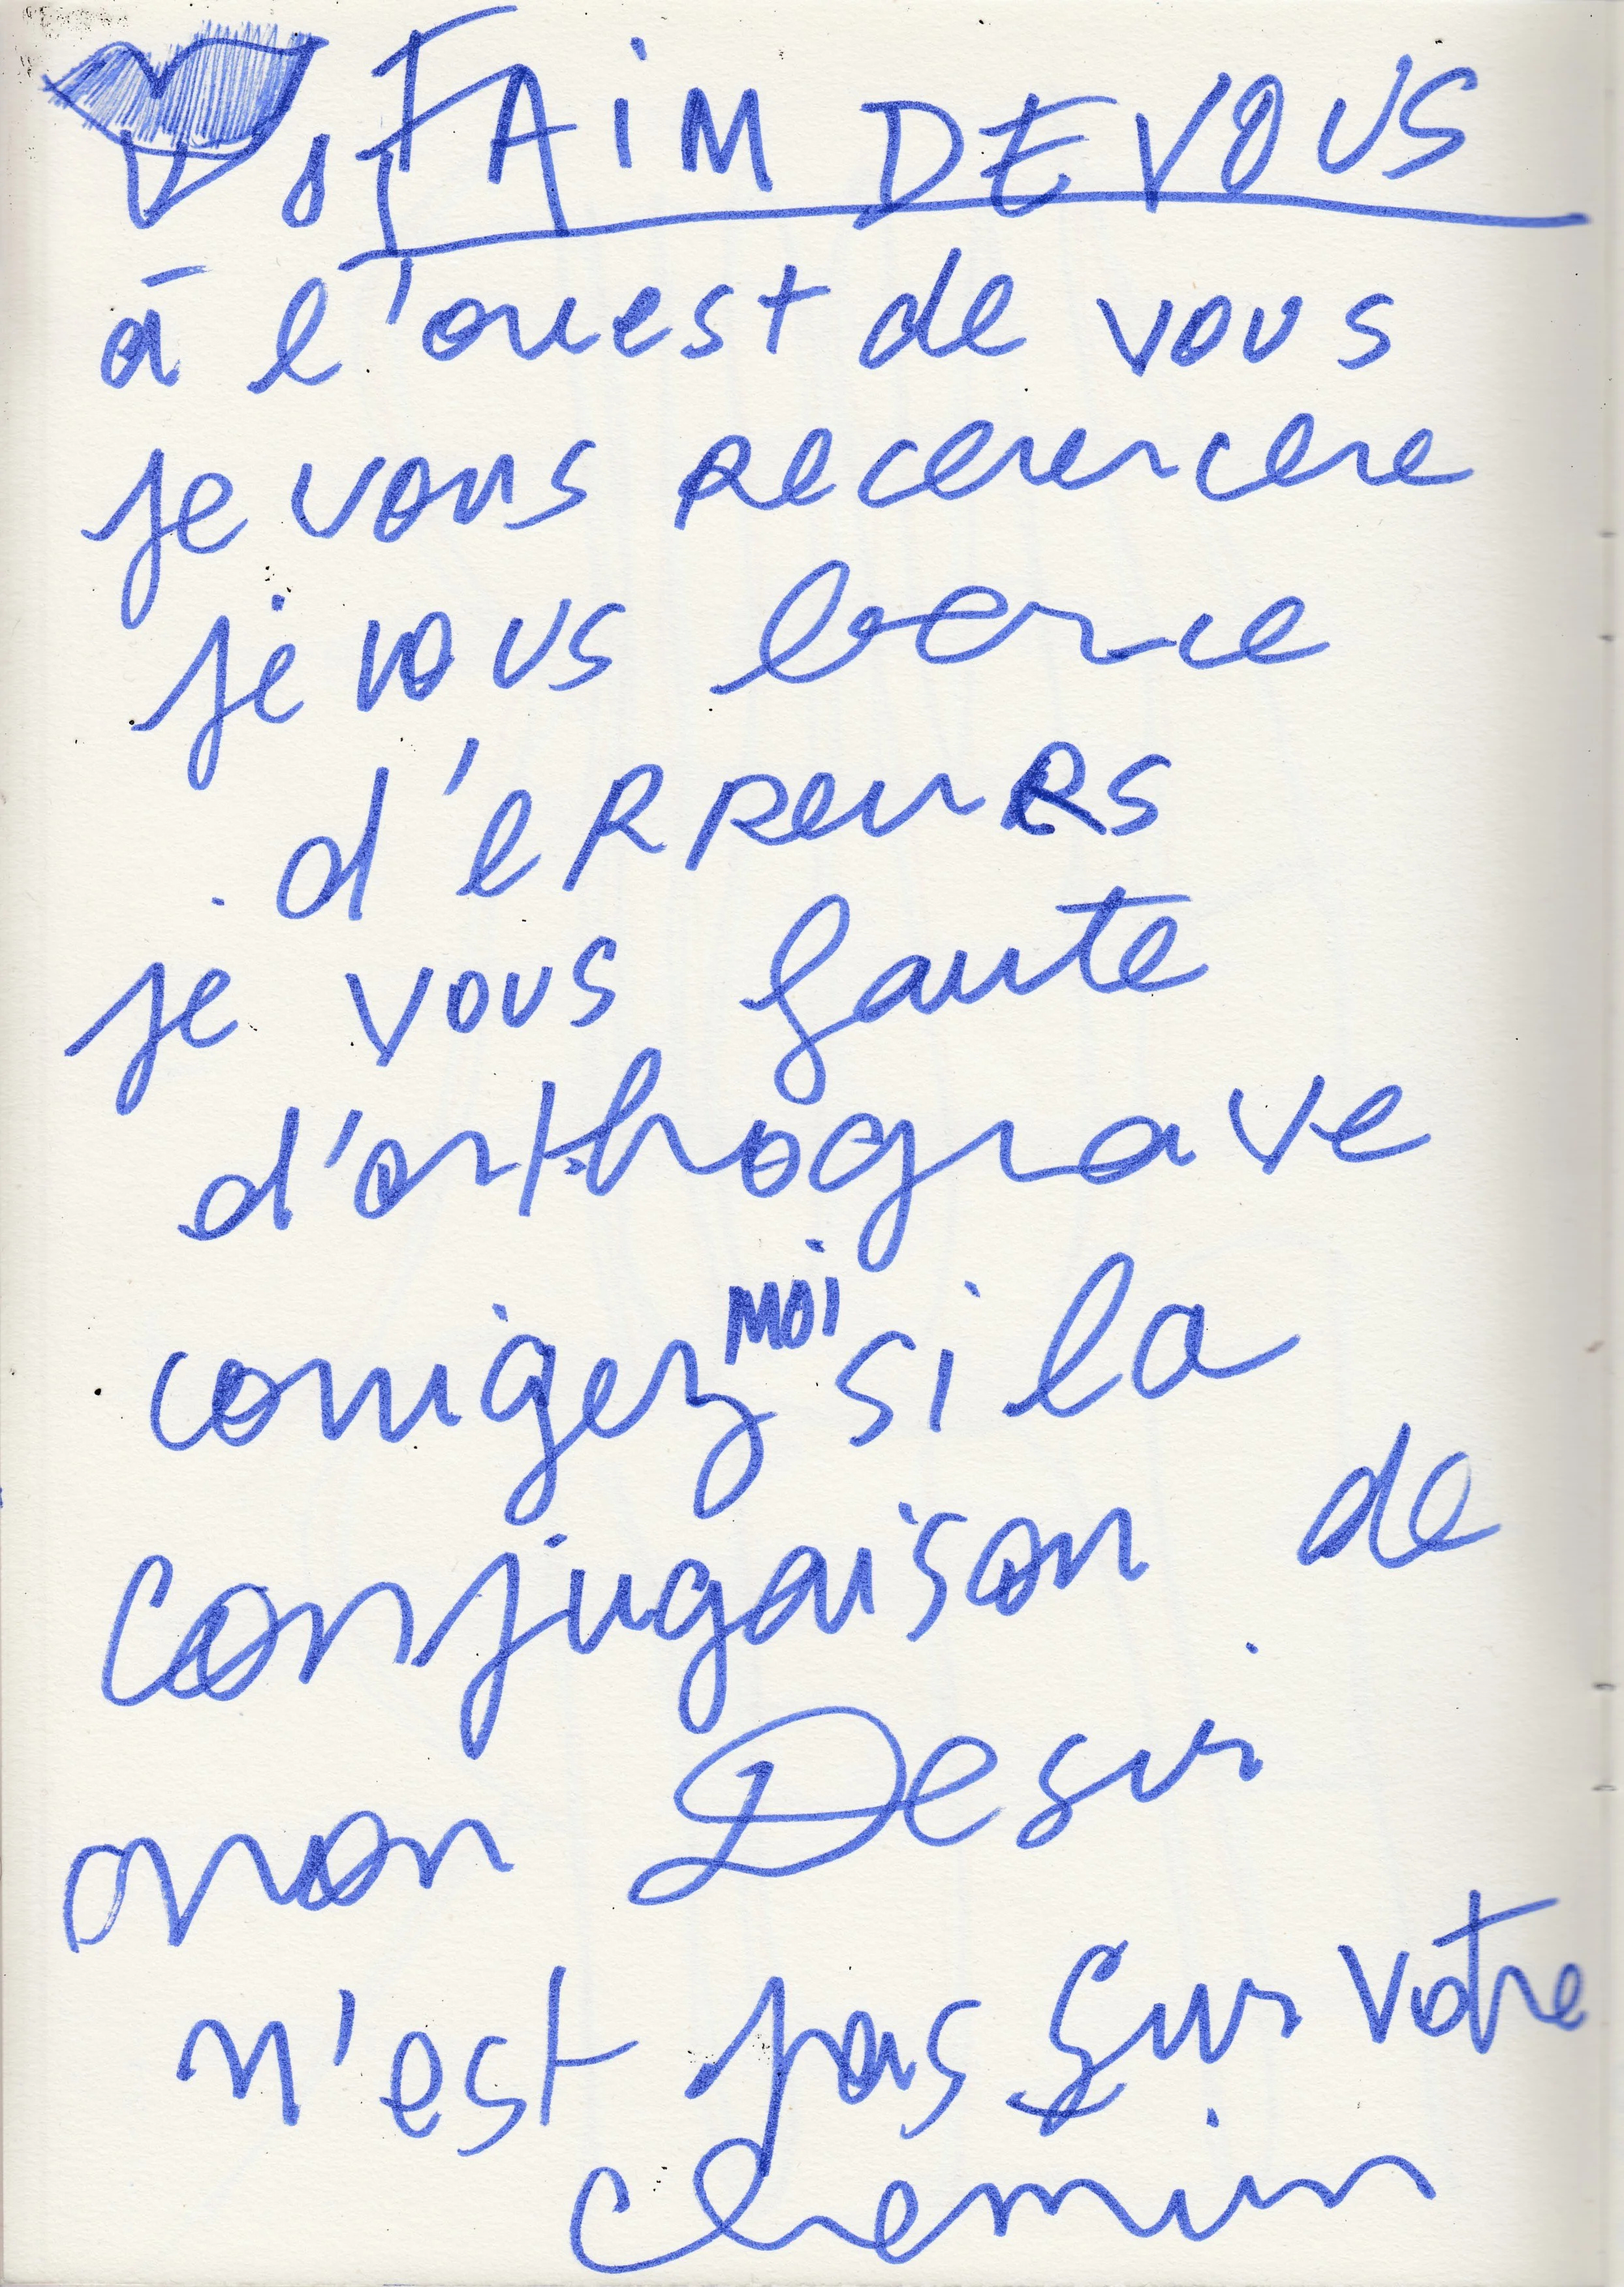 FAIM DE VOUS
à l'ouest de vous
je vous recherche
je vous berce
d'erreurs
je vous faute
d'orthograve
corrigez moi si la
conjugaison de
mon Desir
n'est pas sur votre
chemin